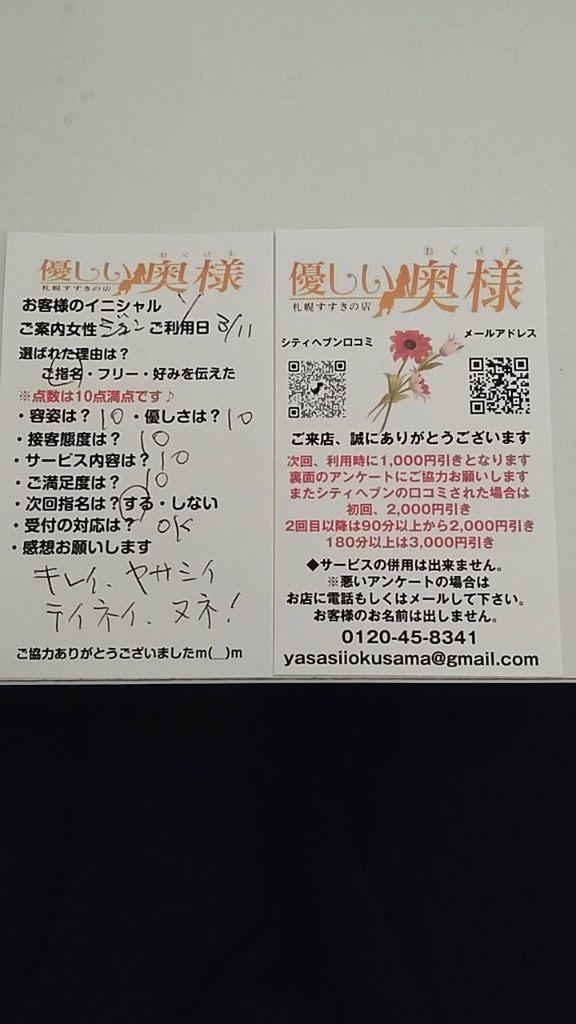 おくさま
優しい奥様
札幌すすきの店
お客様のイニシャル Y
ご案内女性 ジュン ご利用日 3/11
選ばれた理由は？
ご指名・フリー・好みを伝えた
※点数は10点満点です♪
・容姿は？ 10 ・優しさは？ 10
・接客態度は？ 10
・サービス内容は？ 10
・ご満足度は？ 10
・次回指名は？する・しない
・受付の対応は？ OK
・感想お願いします
キレイ、ヤサシイ
テイネイ、ヌネ！
ご協力ありがとうございましたm(__)m
おくさま
優しい奥様
札幌すすきの店
シティヘブン口コミ
メールアドレス
ご来店、誠にありがとうございます
次回、利用時に1,000円引きとなります
裏面のアンケートにご協力お願いします
またシティヘブンの口コミされた場合は
初回、2,000円引き
2回目以降は90分以上から2,000円引き
180分以上は3,000円引き
◆サービスの併用は出来ません。
※悪いアンケートの場合は
お店に電話もしくはメールして下さい。
お客様のお名前は出しません。
0120-45-8341
yasasiiokusama@gmail.com